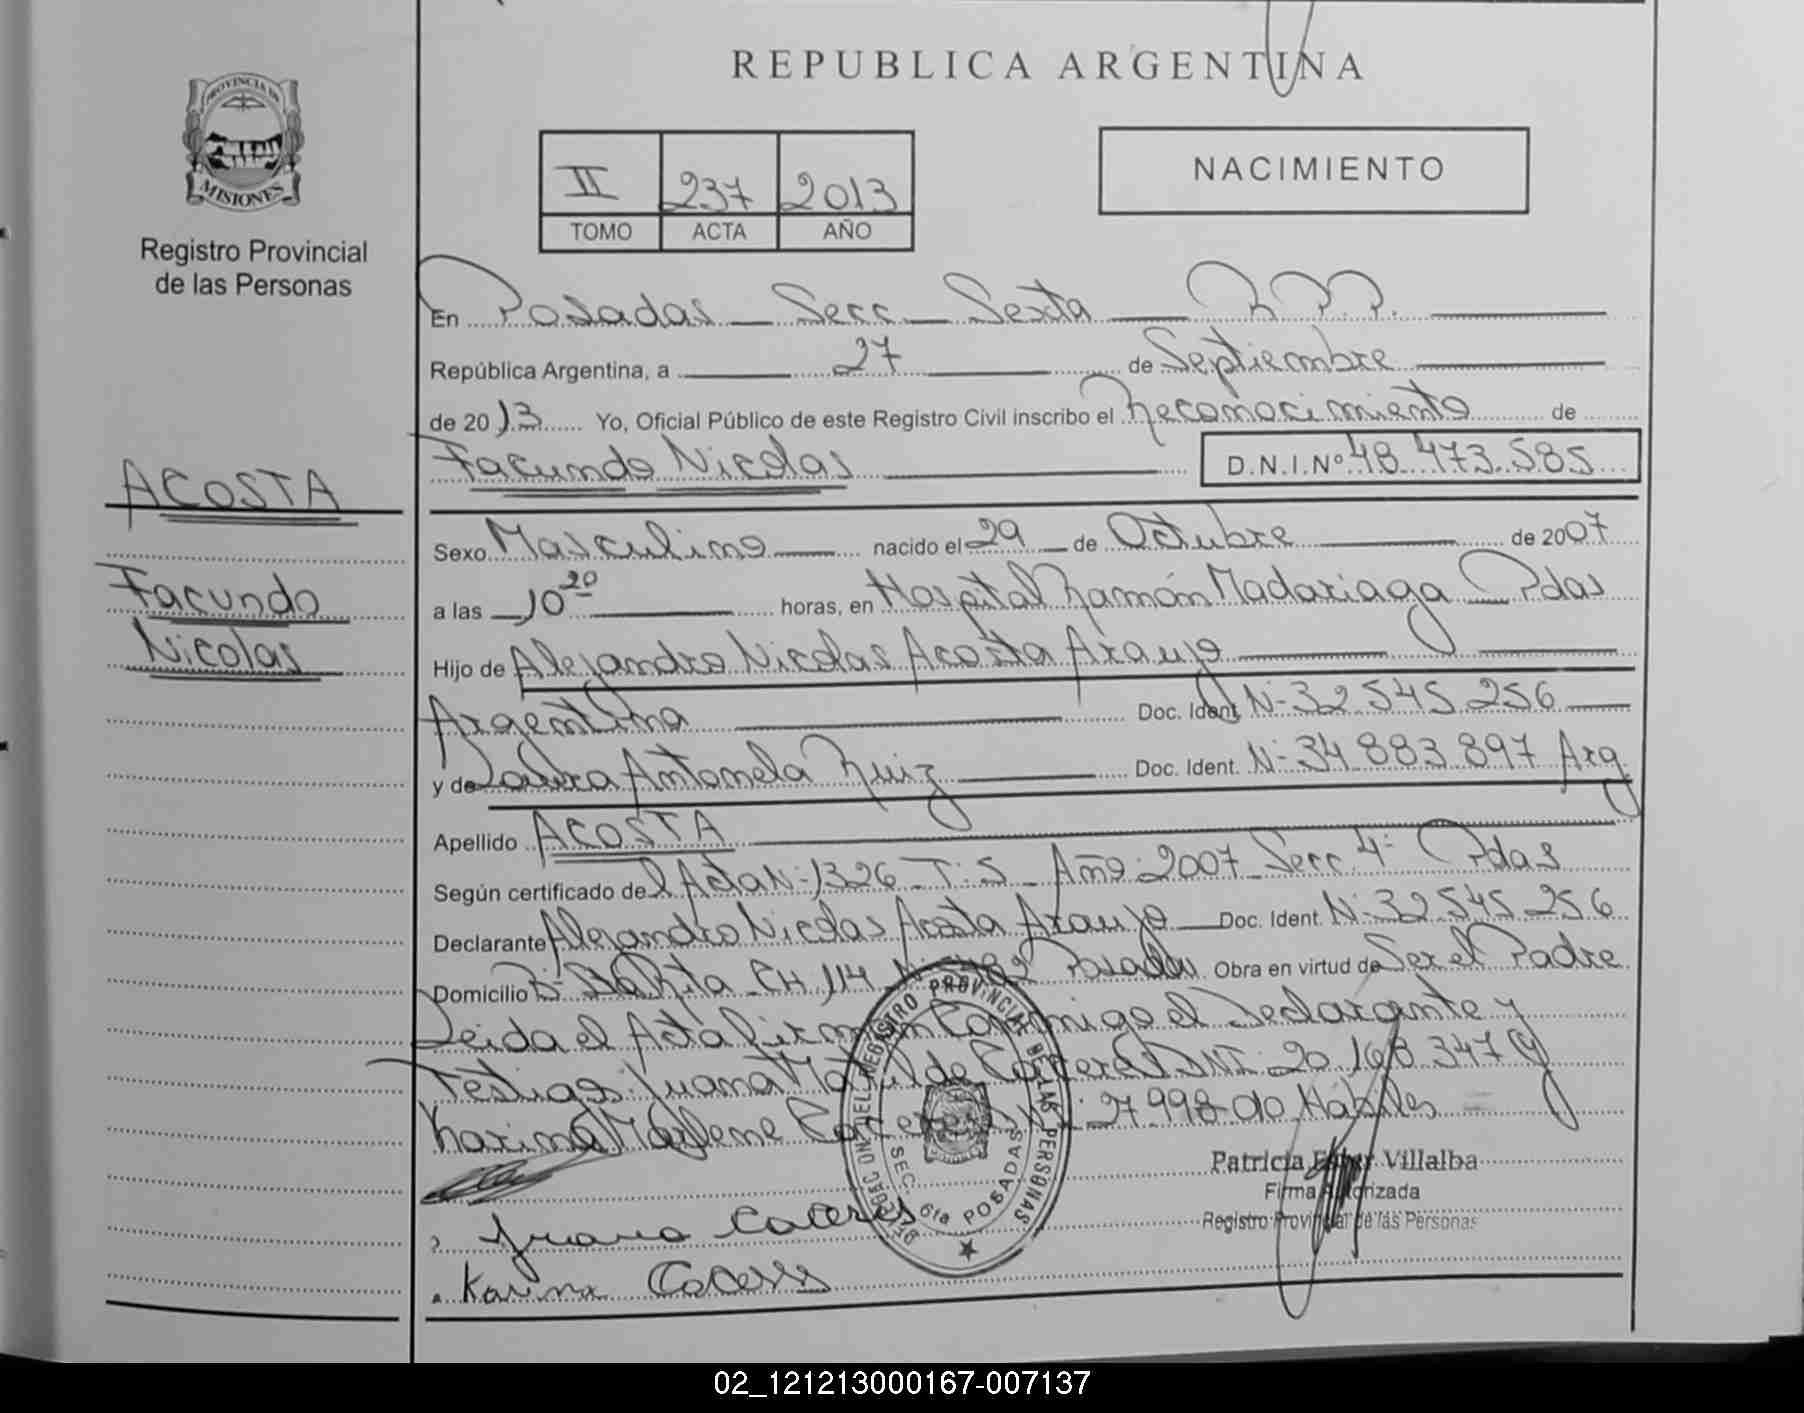 REPUBLICA ARGENTINA
PROVINCIA DE
MISIONES
Registro Provincial
de las Personas
II 237 2013
TOMO ACTA AÑO
NACIMIENTO
En Posadas Secc Sexta R.P.P.
República Argentina, a 27 de Septiembre
de 2013 Yo, Oficial Público de este Registro Civil inscribo el Reconocimiento de
Facundo Nicolas D.N.I.Nº 48.473.585
ACOSTA
Facundo
Nicolas
Sexo Masculino nacido el 29 de Octubre de 2007
a las 10 20 horas, en Hospital Ramón Madariaga Pdas
Hijo de Alejandro Nicolas Acosta Araujo
Argentina Doc. Ident. Nº 32.545.256
y de Laura Antonela Ruiz Doc. Ident. Nº 34.883.897 Arg
Apellido ACOSTA
Según certificado del Acta Nº 1326 T: 5 Año: 2007 Secc 4º Pdas
Declarante Alejandro Nicolas Acosta Araujo Doc. Ident. Nº 32.545.256
Domicilio Bº Sta Rita CH 114 Posadas Obra en virtud de Ser el Padre
Leida el Acta firman Conmigo el Declarante y
Testigos: Juana Matilde Caceres DNI: 20.168.347 y
Karina Marlene Caceres Habiles
DELEGACION DEL REGISTRO PROVINCIAL DE LAS PERSONAS
SEC. 6ta POSADAS
Patricia Ester Villalba
Firma Autorizada
Registro Provincial de las Personas
Juana Caceres
Karina Caceres
02_121213000167-007137